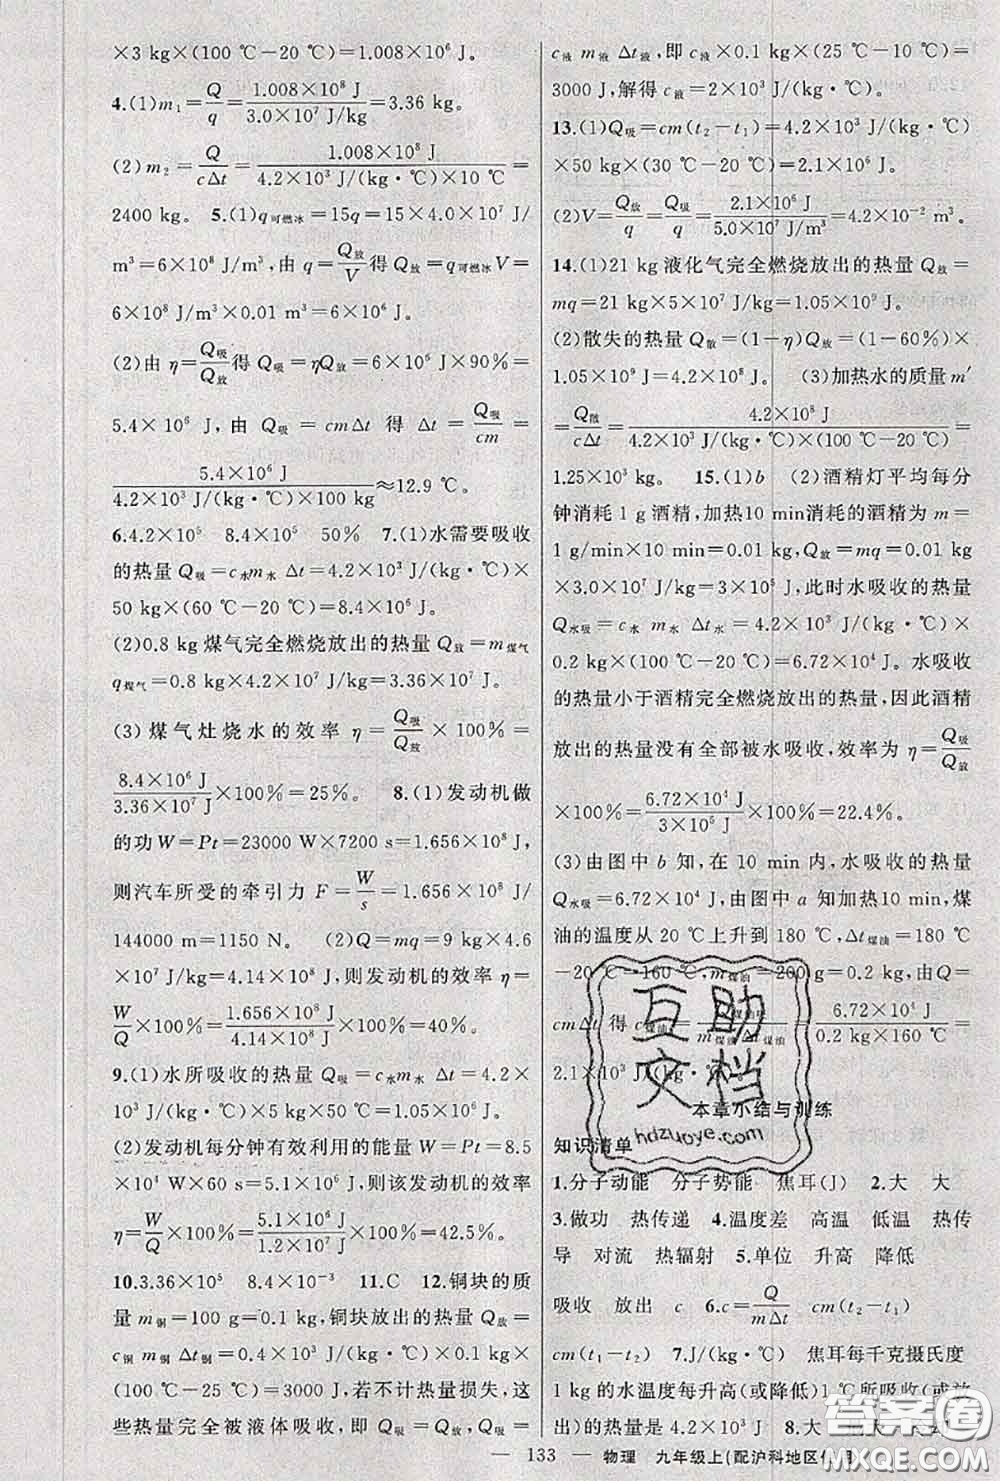 ×3 kg×(100 ℃−20 ℃)=1.008×10⁶ J。
4.(1)m₁=Q/q=1.008×10⁸ J/3.0×10⁷ J/kg=3.36 kg。
(2)m₂=Q/cΔt=1.008×10⁸ J/4.2×10³ J/(kg·℃)×10 ℃=
2400 kg。 5.(1)q可燃冰=15q=15×4.0×10⁷ J/
m³=6×10⁸ J/m³,由 q=Q放/V得 Q放=q可燃冰V=
6×10⁸ J/m³×0.01 m³=6×10⁶ J。
(2)由 η=Q吸/Q放得 Q吸=ηQ放=6×10⁶ J×90%=
5.4×10⁶ J,由 Q吸=cmΔt 得 Δt=Q吸/cm=
5.4×10⁶ J/4.2×10³ J/(kg·℃)×100 kg≈12.9 ℃。
6.4.2×10⁵ 8.4×10⁵ 50% 7.(1)水需要吸收
的热量 Q吸=c水m水 Δt=4.2×10³ J/(kg·℃)×
50 kg×(60 ℃−20 ℃)=8.4×10⁶ J。
(2)0.8 kg煤气完全燃烧放出的热量 Q放=m煤气
q煤气=0.8 kg×4.2×10⁷ J/kg=3.36×10⁷ J。
(3)煤气灶烧水的效率 η=Q吸/Q放×100%=
8.4×10⁶ J/3.36×10⁷ J×100%=25%。 8.(1)发动机做
的功 W=Pt=23000 W×7200 s=1.656×10⁸ J,
则汽车所受的牵引力 F=W/s=1.656×10⁸ J/
144000 m=1150 N。 (2)Q=mq=9 kg×4.6
×10⁷ J/kg=4.14×10⁸ J,则发动机的效率 η=
W/Q×100%=1.656×10⁸ J/4.14×10⁸ J×100%=40%。
9.(1)水所吸收的热量 Q吸=c水m水 Δt=4.2×
10³ J/(kg·℃)×5 kg×5 ℃=1.05×10⁵ J。
(2)发动机每分钟有效利用的能量 W=Pt=8.5
×10⁴ W×60 s=5.1×10⁶ J,则该发动机的效率
η=W/Q×100%=5.1×10⁶ J/1.2×10⁷ J×100%=42.5%。
10.3.36×10⁵ 8.4×10⁻³ 11.C 12.铜块的质
量 m铜=100 g=0.1 kg,铜块放出的热量 Q放=
c铜 m铜 Δt铜=0.4×10³ J/(kg·℃)×0.1 kg×
(100 ℃−25 ℃)=3000 J,若不计热量损失,这
些热量完全被液体吸收,即 Q放=Q吸,Q吸=
c液 m液 Δt液,即 c液×0.1 kg×(25 ℃−10 ℃)=
3000 J,解得 c液=2×10³ J/(kg·℃)。
13.(1)Q吸=cm(t₂−t₁)=4.2×10³ J/(kg·℃)
×50 kg×(30 ℃−20 ℃)=2.1×10⁶ J。
(2)V=Q放/q=Q吸/q=2.1×10⁶ J/5.0×10⁷ J/m³=4.2×10⁻² m³。
14.(1)21 kg液化气完全燃烧放出的热量 Q放=
mq=21 kg×5×10⁷ J/kg=1.05×10⁹ J。
(2)散失的热量 Q散=(1−η)Q放=(1−60%)×
1.05×10⁹ J=4.2×10⁸ J。 (3)加热水的质量 m′
=Q散/cΔt=4.2×10⁸ J/4.2×10³ J/(kg·℃)×(100 ℃−20 ℃)=
1.25×10³ kg。 15.(1)b (2)酒精灯平均每分
钟消耗 1 g酒精,加热10 min消耗的酒精为 m=
1 g/min×10 min=0.01 kg,Q放=mq=0.01 kg
×3.0×10⁷ J/kg=3×10⁵ J,此时水吸收的热量
Q水吸=c水 m水 Δt水=4.2×10³ J/(kg·℃)×
0.2 kg×(100 ℃−20 ℃)=6.72×10⁴ J。水吸收
的热量小于酒精完全燃烧放出的热量,因此酒精
放出的热量没有全部被水吸收,效率为 η=Q吸/Q放
×100%=6.72×10⁴ J/3×10⁵ J×100%=22.4%。
(3)由图中 b 知,在 10 min 内,水吸收的热量
Q水吸=6.72×10⁴ J,由图中 a 知加热10 min,煤
油的温度从 20 ℃上升到 180 ℃,Δt煤油=180 ℃
−20 ℃=160 ℃,m煤油=200 g=0.2 kg,由Q=
cmΔt 得 c煤油= m煤油 Δt煤油=6.72×10⁴ J/0.2 kg×160 ℃=
2.1×10³ J/(kg·℃)。
本章小结与训练
知识清单
1.分子动能 分子势能 焦耳(J) 2.大 大
3.做功 热传递 4.温度差 高温 低温 热传
导 对流 热辐射 5.单位 升高 降低
吸收 放出 c 6.c=Q/mΔt cm(t₂−t₁)
cm(t₁−t₂) 7.J/(kg·℃) 焦耳每千克摄氏度
1 kg的水温度每升高(或降低)1 ℃所吸收(或放
出)的热量是 4.2×10³ J 8.大
— 133 — 物理 九年级上(配沪科地区使用)
互助
文档
hdzuoye.com
答案圈
MXQE.COM